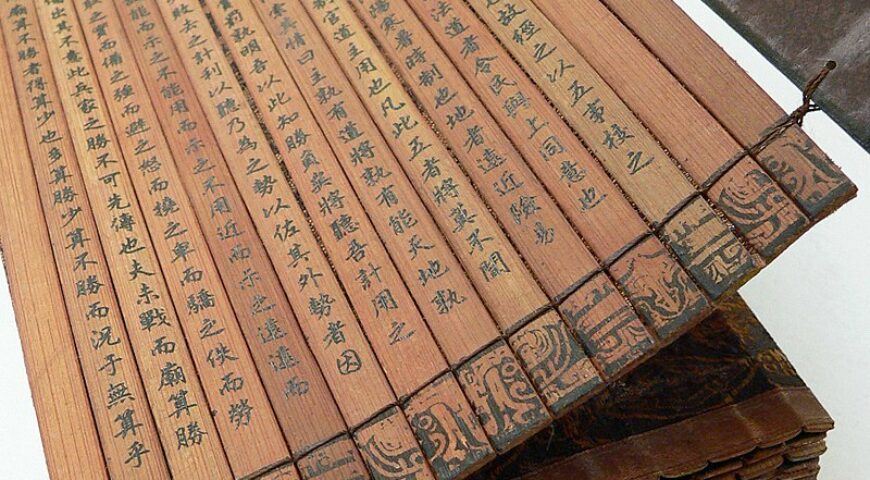 故經之以五事校之
法道者令民與上同意也
陽寒暑時制也地者遠近險易
制官道主用也凡此五者將莫不聞
索其情曰主孰有道將孰有能天地孰
罰孰明吾以此知勝負矣將聽吾計用之
敗去之計利以聽乃為之勢以佐其外勢者因
能而示之不能用而示之不用近而示之遠遠而
之實而備之強而避之怒而撓之卑而驕之佚而勞
出其不意此兵家之勝不可先傳也夫未戰而廟算勝
廟算不勝者得算少也多算勝少算不勝而況于無算乎